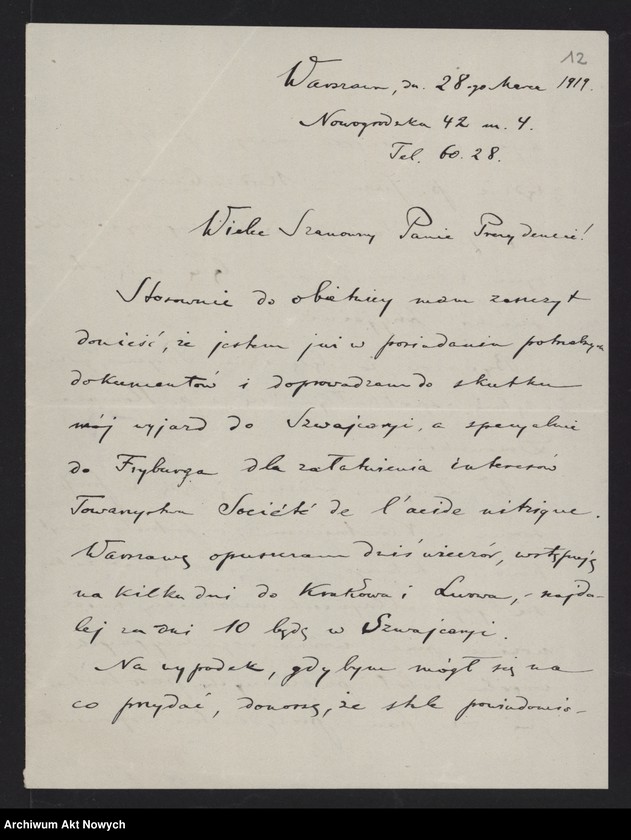 12
Warszawa, dn. 28-go Marca 1919.
Nowogrodzka 42 m. 4.
Tel. 60.28.
Wielce Szanowny Panie Prezydencie!
Stosownie do obietnicy mam zaszczyt
donieść, że jestem już w posiadaniu potrzebnych
dokumentów i doprowadzam do skutku
mój wyjazd do Szwajcaryi, a specyalnie
do Fryburga dla załatwienia interesów
Towarzystwa Société de l'acide nitrique.
Warszawę opuszczam dziś wieczór, wstępuję
na kilka dni do Krakowa i Lwowa, - najda-
lej za dni 10 będę w Szwajcaryi.
Na wypadek, gdybym mógł się na
co przydać, donoszę, że stałe powiadomie-
Archiwum Akt Nowych